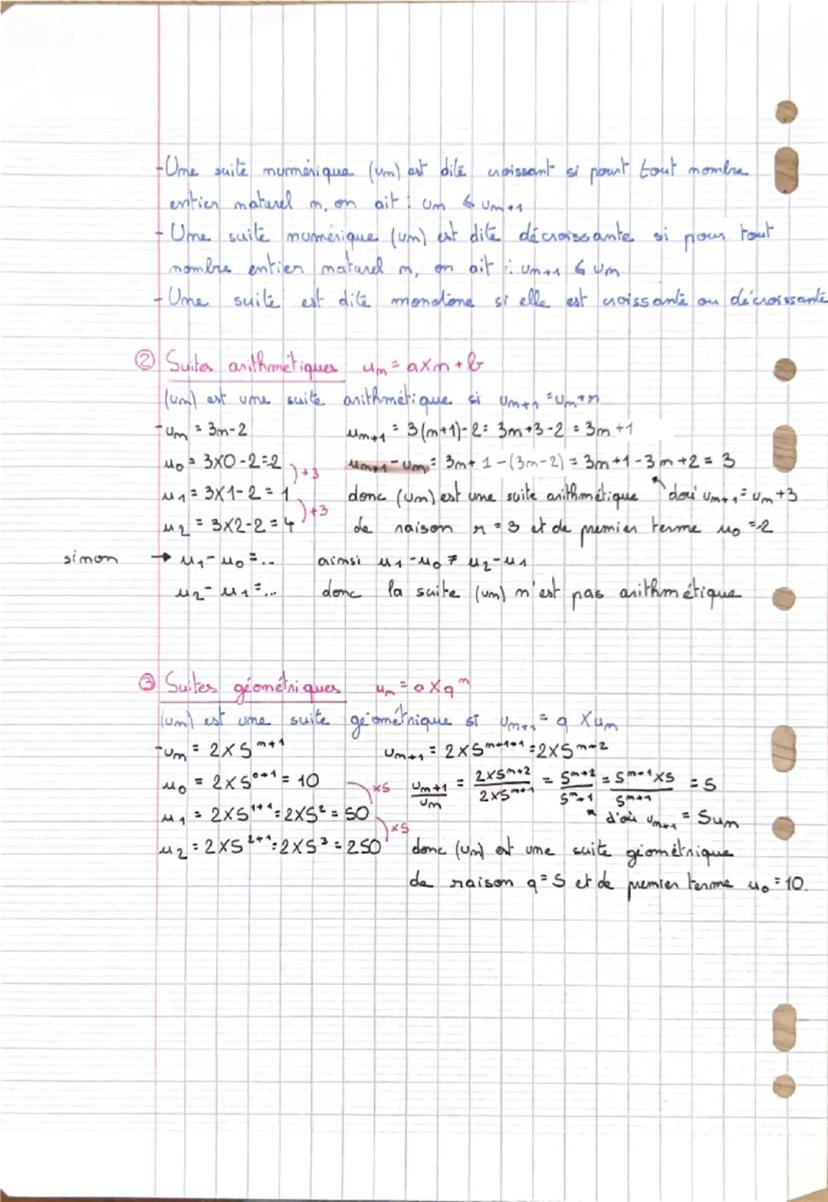 - Une suite numérique (un) est dite croissant si pourt tout nombre
entier naturel n, on ait : un ≤ un+1
- Une suite numérique (un) est dite décroissante si pour tout
nombre entier naturel n, on ait : un+1 ≤ un
- Une suite est dite monotone si elle est croissante ou décroissante
② Suites arithmétiques un = a×n+b
(un) est une suite arithmétique si un+1 = un+r
- un = 3n-2 un+1 = 3(n+1)-2 = 3n+3-2 = 3n+1
u0 = 3×0-2=-2 )+3 un+1 - un = 3n+1-(3n-2) = 3n+1-3n+2 = 3
u1 = 3×1-2 = 1 )+3 donc (un) est une suite arithmétique d'où un+1 = un+3
u2 = 3×2-2 = 4 de raison r = 3 et de premier terme u0 = -2
sinon → u1-u0 = ... ainsi u1-u0 ≠ u2-u1
u2-u1 = ... donc la suite (un) n'est pas arithmétique
③ Suites géométriques un = a×q^n
(un) est une suite géométrique si un+1 = q × un
- un = 2×5^n+1 un+1 = 2×5^n+1+1 = 2×5^n+2
u0 = 2×5^0+1 = 10 ×5 un+1/un = 2×5^n+2/2×5^n+1 = 5^n+2/5^n+1 = 5^n+1×5/5^n+1 = 5
u1 = 2×5^1+1 = 2×5² = 50 ×5 d'où un+1 = 5un
u2 = 2×5^2+1 = 2×5³ = 250 donc (un) est une suite géométrique
de raison q = 5 et de premier terme u0 = 10.